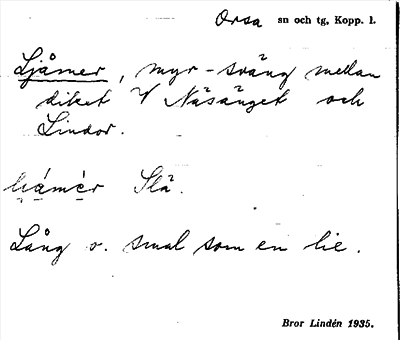 Orsa sn och tg, Kopp. l.
Ljåmer, myr-sväng mellan
diket V Näsänget och
Lindor.
Slä.
Lång o. smal som en lie.
Bror Lindén 1935.